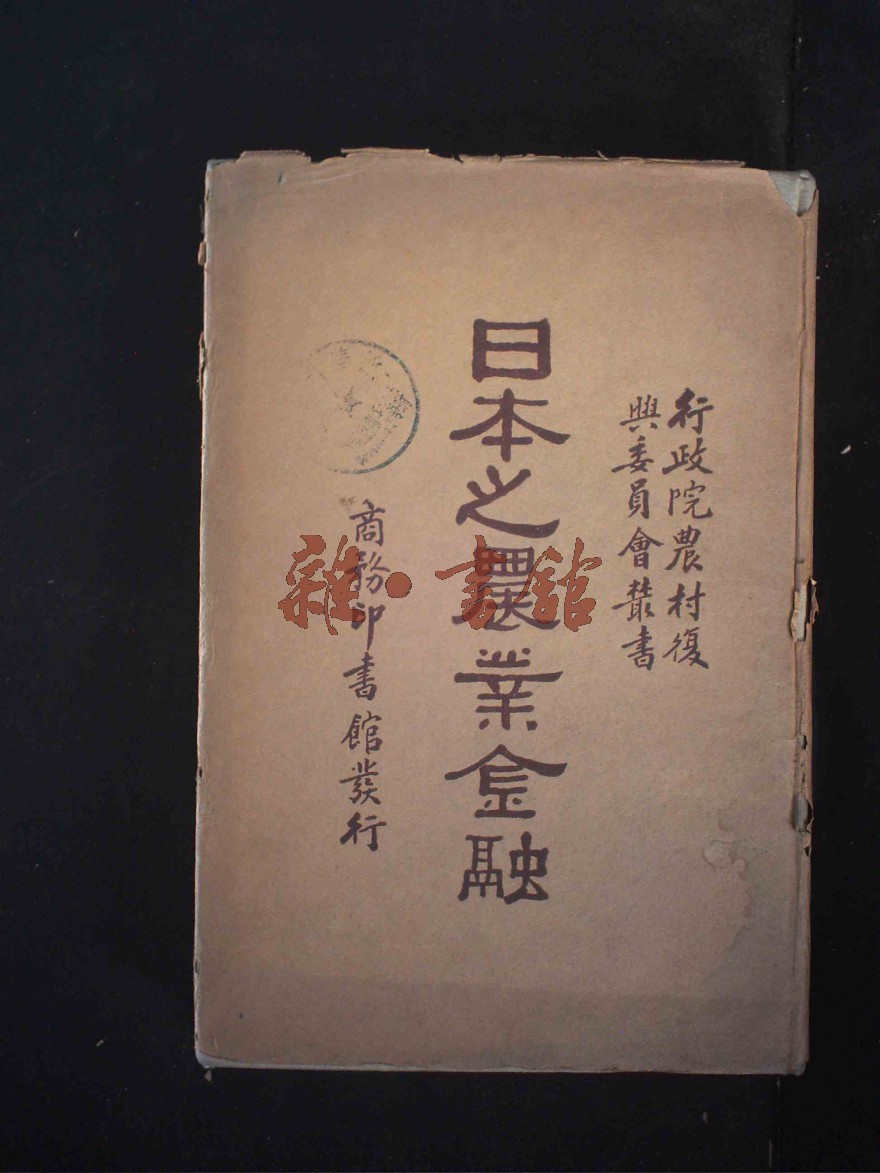 行政院農村復
興委員會叢書
日本之農業金融
商務印書館發行
雜·書館